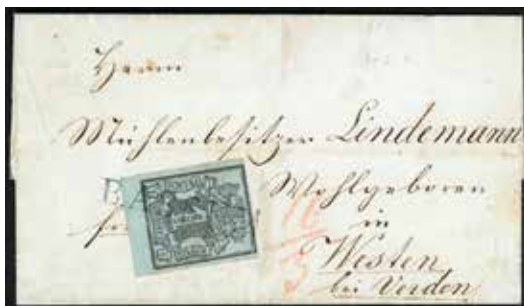 Herrn
Mühlenbesitzer Lindemann
Wohlgeboren
in
Westen
bei Verden